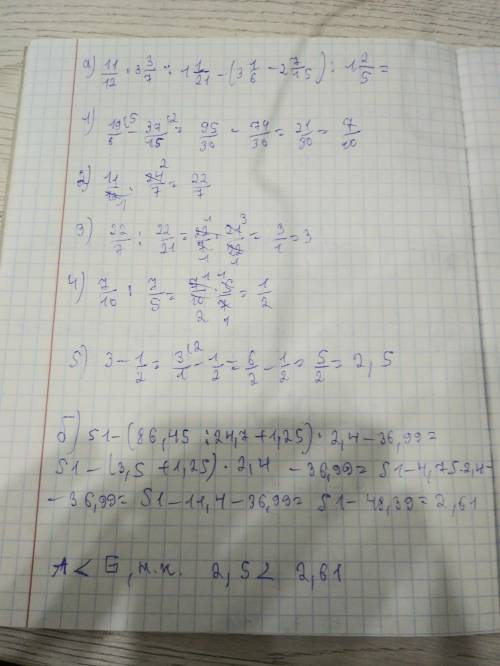 а) 11/12 · 3 3/7 : 1 1/21 - (3 1/6 - 2 7/15) : 1 2/5 =
1) 19/6 - 37/15 = 95/30 - 74/30 = 21/30 = 7/10
2) 11/12 · 24/7 = 22/7
3) 22/7 : 22/21 = 22/7 · 21/22 = 3/1 = 3
4) 7/10 : 7/5 = 7/10 · 5/7 = 1/2
5) 3 - 1/2 = 3/1 - 1/2 = 6/2 - 1/2 = 5/2 = 2,5
б) 51-(86,45 : 24,7+1,25) · 2,4-36,99=
51-(3,5 +1,25) · 2,4 -36,99= 51-4,75·2,4-
-36,99= 51-11,4-36,99= 51-48,39=2,61
А < Б, т.к. 2,5< 2,61